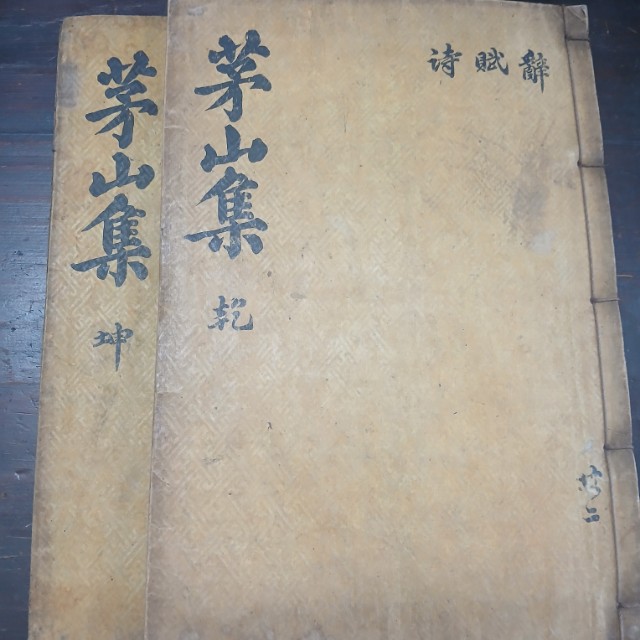 辭賦詩
茅山集 乾
茅山集 坤